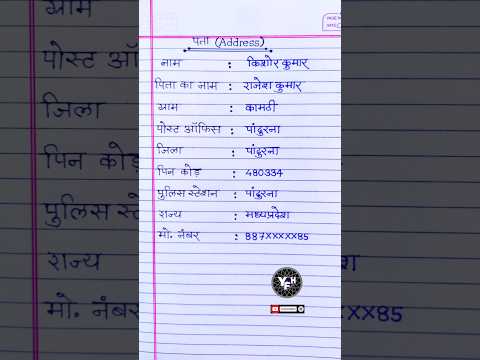 पता (Address)
नाम : किशोर कुमार्
पिता का नाम : राजेश कुमार्
ग्राम : कामठी
पोस्ट ऑफिस : पांढुरना
जिला : पांढुरना
पिन कोड़ : 480334
पुलिस स्टेशन : पांढुरना
राज्य : मध्यप्रदेश
मो. नंबर् : 887XXXXX85
ग्राम
पोस्ट ऑ
जिला
पिन कोड़
पुलिस स्टे
राज्य
मो. नंबर
XX85